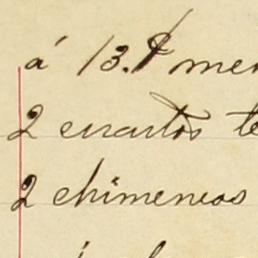 á 13.$ men
2 cuartos te
2 chimeneas